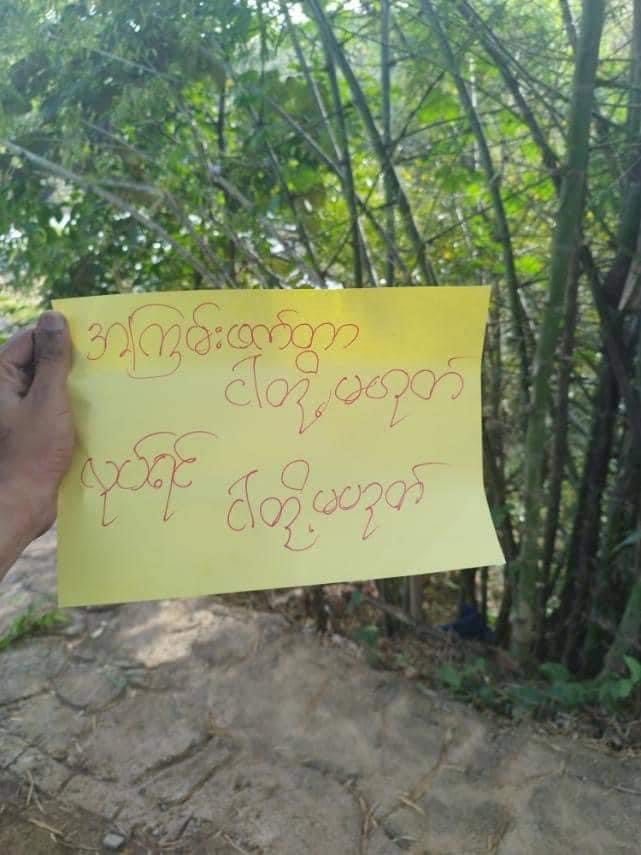 အကြမ်းဖက်တာ
ငါတို့မဟုတ်
လုပ်ရင်
ငါတို့မဟုတ်